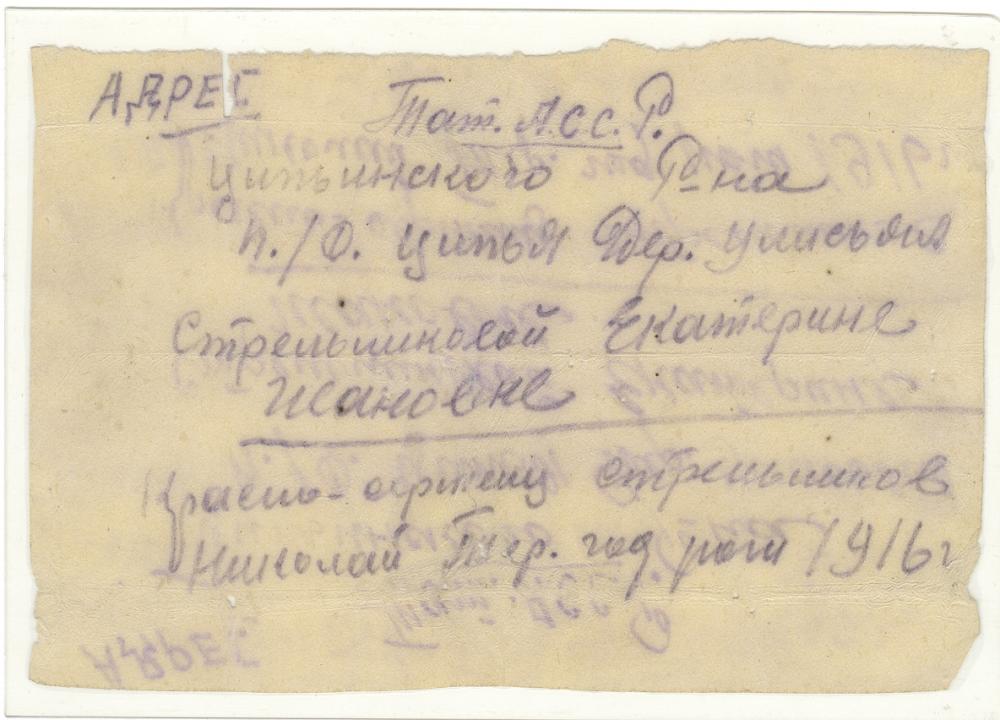 АДРЕС
Тат. А.С.С.Р.
Ципьинского Р-на
п./о. Ципья Дер.
Стрельниковой Екатерине
Ивановне
Красно-армеец Стрельников
Николай год рож 1916 г